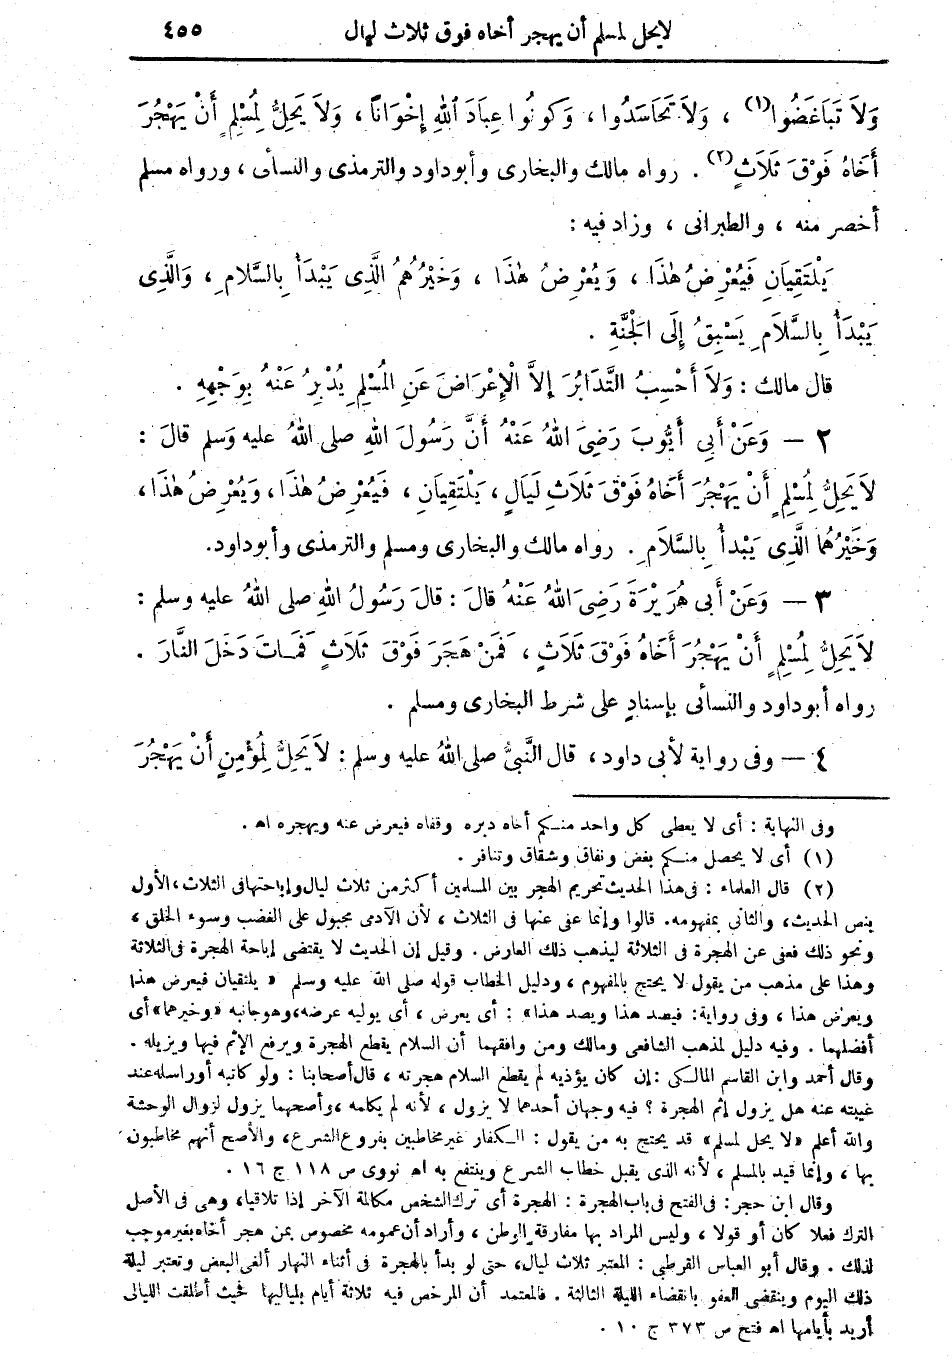 لايحل لمسلم أن يهجر أخاه فوق ثلاث ليال ٤٥٥
وَلاَ تَبَاغَضُوا(١) ، وَلاَ تَحَاسَدُوا ، وَكُونُوا عِبَادَ اللهِ إِخْوَانًا ، وَلاَ يَحِلُّ لِمُسْلِمٍ أَنْ يَهْجُرَ
أَخَاهُ فَوْقَ ثَلاَثٍ(٢) . رواه مالك والبخارى وأبوداود والترمذى والنسأى ، ورواه مسلم
أخصر منه ، والطبرانى ، وزاد فيه :
يَلْتَقِيَانِ فَيُعْرِضُ هٰذَا ، وَيُعْرِضُ هٰذَا ، وَخَيْرُهُمُ الَّذِى يَبْدَأُ بِالسَّلاَمِ ، وَالَّذِى
يَبْدَأُ بِالسَّلاَمِ يَسْبِقُ إِلَى الْجَنَّةِ .
قال مالك : وَلاَ أَحْسِبُ التَّدَابُرَ إِلاَّ الْإِعْرَاضَ عَنِ الْمُسْلِمِ يُدْبِرُ عَنْهُ بِوَجْهِهِ .
٢ — وَعَنْ أَبِى أَيُّوبَ رَضِىَ اللهُ عَنْهُ أَنَّ رَسُولَ اللهِ صلى اللهُ عليه وَسلم قالَ :
لاَيَحِلُّ لِمُسْلِمٍ أَنْ يَهْجُرَ أَخَاهُ فَوْقَ ثَلاَثِ لَيَالٍ ، يَلْتَقِيَانِ ، فَيُعْرِضُ هٰذَا ، وَيُعْرِضُ هٰذَا ،
وَخَيْرُهُمَا الَّذِى يَبْدأُ بِالسَّلاَمِ . رواه مالك والبخارى ومسلم والترمذى وأبوداود.
٣ — وَعَنْ أَبى هُرَيْرَةَ رَضِىَ اللهُ عَنْهُ قالَ : قالَ رَسُولُ اللهِ صلى اللهُ عليه وسلم :
لاَيَحِلُّ لِمُسْلِمٍ أَنْ يَهْجُرَ أَخَاهُ فَوْقَ ثَلاَثٍ ، فَمَنْ هَجَرَ فَوْقَ ثَلاَثٍ فَمَاتَ دَخَلَ النَّارَ .
رواه أبوداود والنسأى بإسنادٍ على شرط البخارى ومسلم .
٤ — وفى رواية لأبى داود ، قال النَّبِىُّ صلى اللهُ عليه وسلم : لاَيَحِلُّ لِمُؤْمِنٍ أَنْ يَهْجُرَ
وفى النهاية : أى لا يعطى كل واحد منكم أخاه دبره وقفاه فيعرض عنه ويهجره اه .
(١) أى لا يحصل منكم بغض ونفاق وشقاق وتنافر .
(٢) قال العلماء : فى هذا الحديث تحريم الهجر بين المسلمين أكثر من ثلاث ليال وإباحتها فى الثلاث ، الأول
بنص الحديث ، والثانى بمفهومه. قالوا وإنما عفى عنها فى الثلاث ، لأن الآدمى مجبول على الغضب وسوء الخلق ،
ونحو ذلك فعفى عن الهجرة فى الثلاثة ليذهب ذلك العارض . وقيل إن الحديث لا يقتضى إباحة الهجرة فى الثلاثة
وهذا على مذهب من يقول لا يحتج بالمفهوم ، ودليل الخطاب قوله صلى الله عليه وسلم « يلتقيان فيعرض هذا
ويعرض هذا ، وفى رواية: فيصد هذا ويصد هذا» : أى يعرض ، أى يوليه عرضه، وهو جانبه «وخيرهما» أى
أفضلهما . وفيه دليل لمذهب الشافعى ومالك ومن وافقهما أن السلام يقطع الهجرة ويرفع الإثم فيها ويزيله .
وقال أحمد وابن القاسم المالكى : إن كان يؤذيه لم يقطع السلام هجرته ، قال أصحابنا : ولو كاتبه أو راسله عند
غيبته عنه هل يزول إثم الهجرة ؟ فيه وجهان أحدهما لا يزول ، لأنه لم يكلمه ، وأصحهما يزول لزوال الوحشة
والله أعلم «لا يحل لمسلم» قد يحتج به من يقول : الكفار غير مخاطبين بفروع الشرع ، والأصح أنهم مخاطبون
بها ، وإنما قيد بالمسلم ، لأنه الذى يقبل خطاب الشرع وينتفع به اه نووى ص ١١٨ ج ١٦ .
وقال ابن حجر : فى الفتح فى باب الهجرة : الهجرة أى ترك الشخص مكالمة الآخر إذا تلاقيا ، وهى فى الأصل
الترك فعلا كان أو قولا ، وليس المراد بها مفارقة الوطن ، وأراد أن عمومه مخصوص بمن هجر أخاه بغير موجب
لذلك . وقال أبو العباس القرطبى : المعتبر ثلاث ليال ، حتى لو بدأ بالهجرة فى أثناء النهار ألغى البعض وتعتبر ليلة
ذلك اليوم وينقضى العفو بانقضاء الليلة الثالثة . فالمعتمد أن المرخص فيه ثلاثة أيام بلياليها فحيث أطلقت الليالى
أريد بأيامها اه فتح ص ٣٧٣ ج ١٠ .